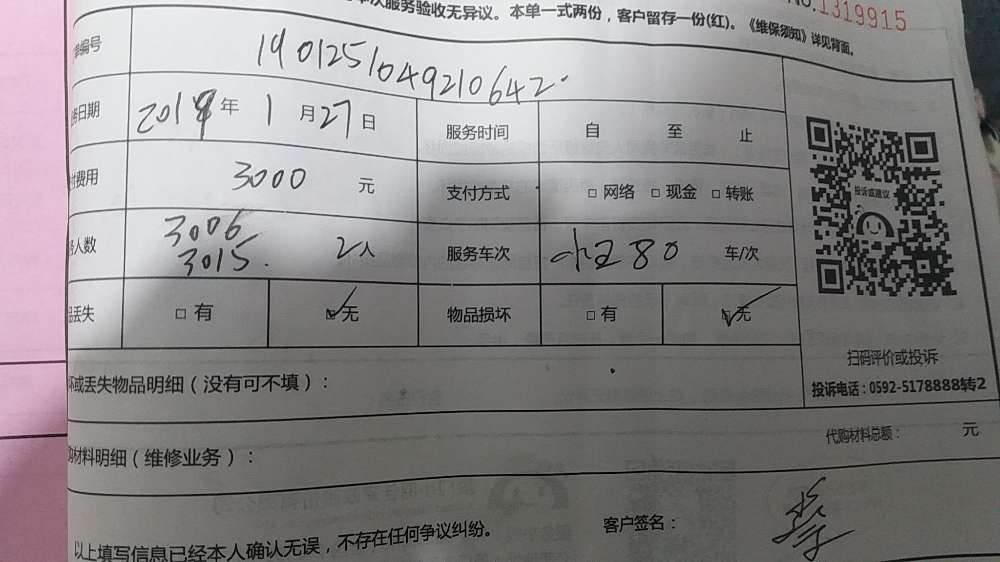 次服务验收无异议。本单一式两份，客户留存一份(红)。《维保须知》详见背面。
NO.1319915
编号 1901251049210642
日期 2019年1月27日 服务时间 自 至 止
费用 3000 元 支付方式 □ 网络 □ 现金 □ 转账
投诉或建议
人数 3006 3015. 2人 服务车次 小工80 车/次
丢失 □ 有 ☑ 无 物品损坏 □ 有 ☑ 无
扫码评价或投诉
投诉电话：0592-5178888转2
坏或丢失物品明细（没有可不填）：
代购材料总额： 元
购材料明细（维修业务）：
客户签名：
以上填写信息已经本人确认无误，不存在任何争议纠纷。